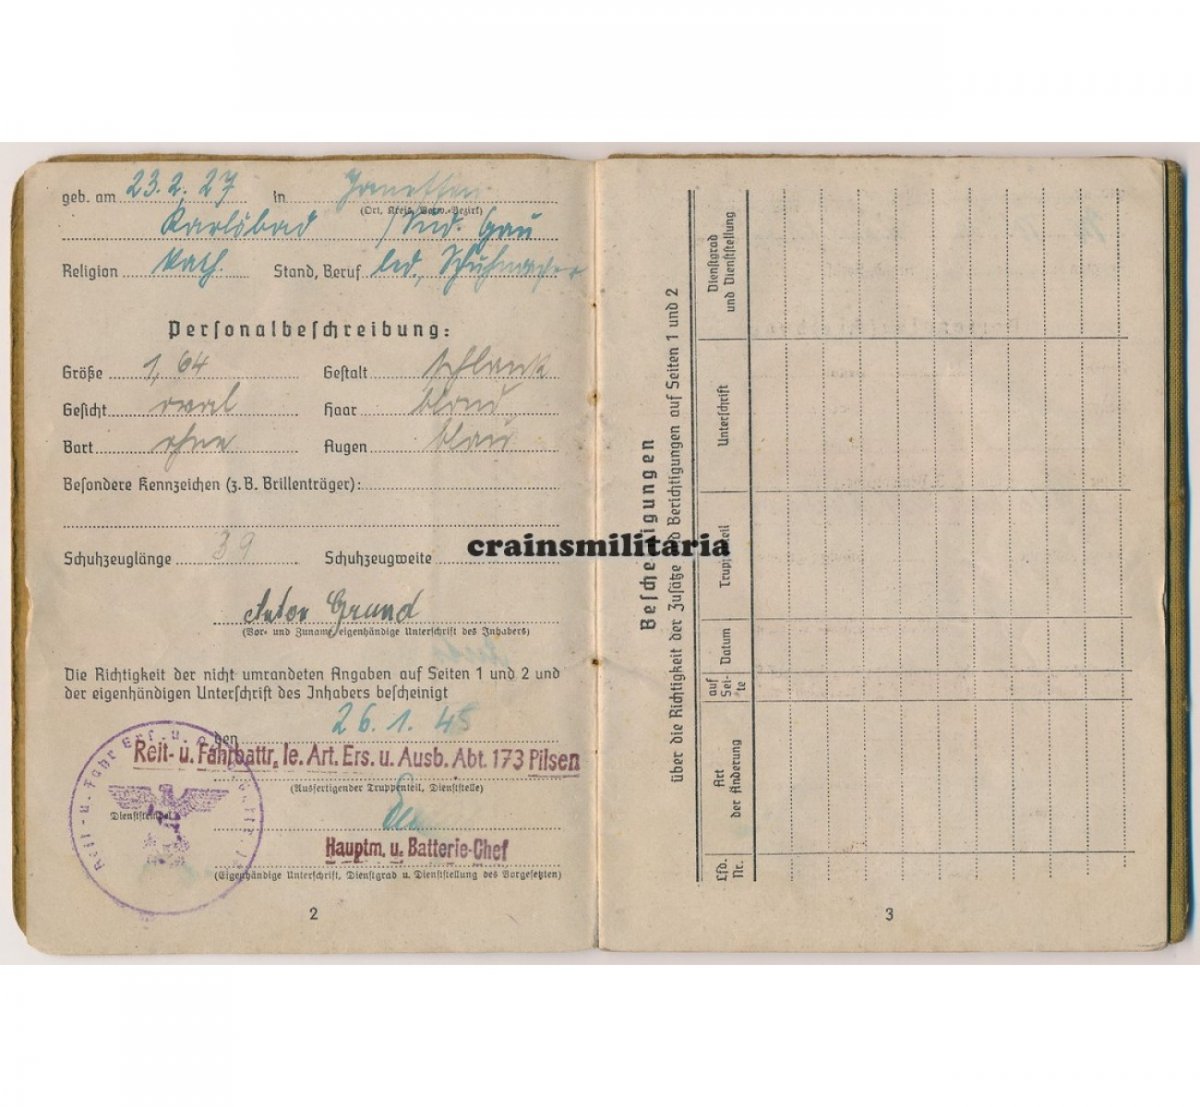 geb. am 23.2.27 in
(Ort, Kreis, Verw.-Bezirk)
Karlsbad /Sud. Gau
Religion kath. Stand, Beruf led., Schuhmacher
Personalbeschreibung:
Größe 1,64 Gestalt schlank
Gesicht oval Haar blond
Bart ohne Augen blau
Besondere Kennzeichen (z. B. Brillenträger):
Schuhzeuglänge 39 Schuhzeugweite
Anton Grund
(Vor- und Zuname, eigenhändige Unterschrift des Inhabers)
Die Richtigkeit der nicht umrandeten Angaben auf Seiten 1 und 2 und
der eigenhändigen Unterschrift des Inhabers bescheinigt
den 26.1.45
Reit- u. Fahrbattr. le. Art. Ers. u. Ausb. Abt. 173 Pilsen
(Ausfertigender Truppenteil, Dienststelle)
Dienststempel
Reit- u. Fahr
Hauptm. u. Batterie-Chef
(Eigenhändige Unterschrift, Dienstgrad u. Dienststellung des Vorgesetzten)
2
crainsmilitaria
Bescheinigungen
über die Richtigkeit der Zusätze und Berichtigungen auf Seiten 1 und 2
Lfd. Nr.
Art der Änderung
auf Sei- te
Datum
Truppenteil
Unterschrift
Dienstgrad und Dienststellung
3